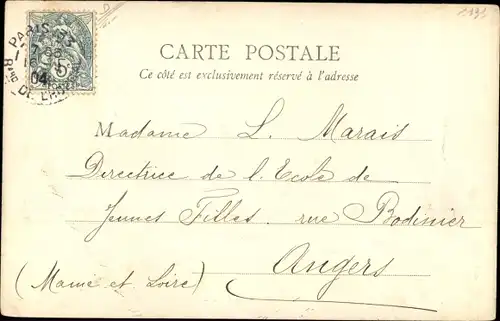 1191
PARIS 93
04
Bard DE L'HO
5
CARTE POSTALE
Ce côté est exclusivement réservé à l'adresse
M
Madame L. Marais
Directrice de l'Ecole de
Jeunes Filles. rue Bodinier
Angers
(Maine et Loire)